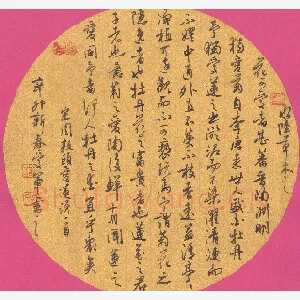 水陸草木之
花可愛者甚蕃晉陶淵明
獨愛菊自李唐來世人盛愛牡丹
予獨愛蓮之出淤泥而不染濯清漣而
不妖中通外直不蔓不枝香遠益清亭亭
淨植可遠觀而不可褻玩焉予謂菊花之
隱逸者也牡丹花之富貴者也蓮花之君
子者也噫菊之愛陶後鮮有聞蓮之
愛同予者何人牡丹之愛宜乎眾矣
宋周敦頤愛蓮說一首
辛卯新春